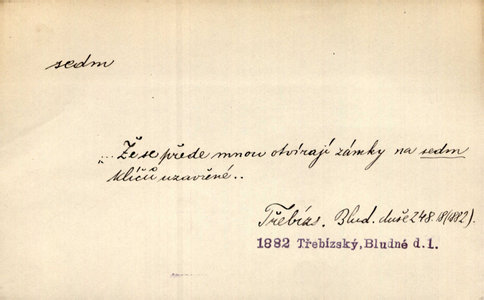 sedm
„... Že se přede mnou otvírají zámky na sedm
klíčů uzavřené..
Třebízs. Blud. duše 248.18(1882).
1882 Třebízský, Bludné d. 1.